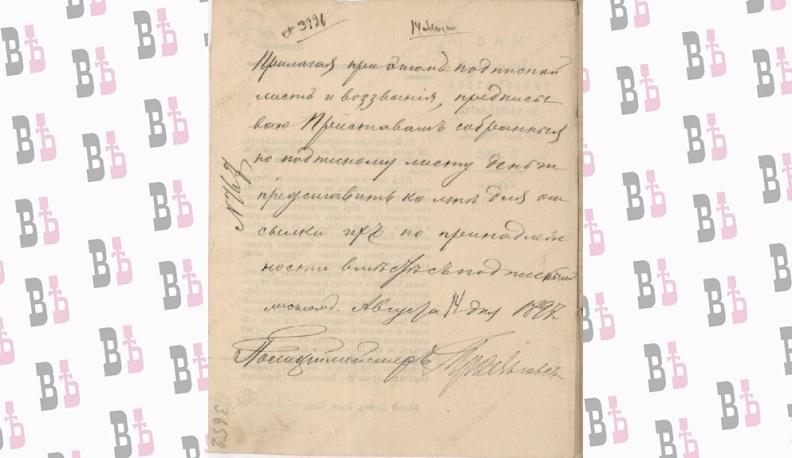 № 3996
14 Авг
Прилагая при этомъ подписной
листъ и воззванія, предписы
ваю Приставамъ собранныя
по подписному листу деньги
представить ко мнѣ для от
сылки ихъ по принадлеж
ности вмѣстѣ съ подписнымъ
листомъ. Августа 14 дня 1897
Полиціймейстеръ
3652
ВѢ